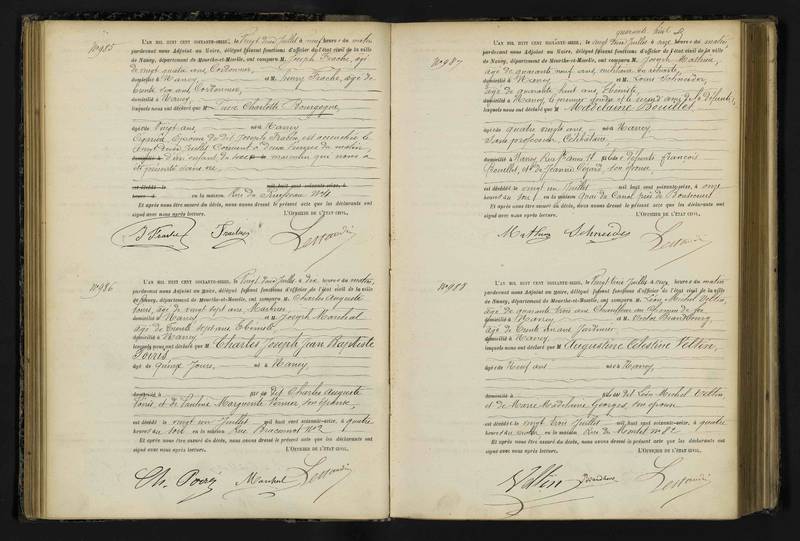 N° 985
L'AN MIL HUIT CENT SOIXANTE-SEIZE, le Vingt deux Juillet à neuf heures du matin
pardevant nous Adjoint au Maire, délégué faisant fonctions d'officier de l'état civil de la ville
de Nancy, département de Meurthe-et-Moselle, ont comparu M. Joseph Frache, âgé
de vingt quatre ans, Cordonnier,
domicilié à Nancy, et M. Henry Frache, âgé de
trente six ans, Cordonnier,
domicilié à Nancy,
lesquels nous ont déclaré que M Charlotte Bourgogne,
âgée de Vingt ans, née à Nancy
épouse du dit Joseph Frache, est accouchée le
vingt deux Juillet Courant à deux heures du matin,
domicilié à d'un enfant du sexe masculin qui nous a
été présenté sans vie,
est décédé le mil huit cent soixante-seize, à
heures en la maison Rue du Ruisseau N° 4
Et après nous être assuré du décès, nous avons dressé le présent acte que les déclarants ont
signé avec nous après lecture. L'OFFICIER DE L'ÉTAT CIVIL,
J Frache Frache
N° 986
L'AN MIL HUIT CENT SOIXANTE-SEIZE, le Vingt deux Juillet à dix heures du matin,
pardevant nous Adjoint au Maire, délégué faisant fonctions d'officier de l'état civil de la ville
de Nancy, département de Meurthe-et-Moselle, ont comparu M. Charles Auguste
âgé de vingt sept ans,
domicilié à Nancy et M. Joseph Marchal
âgé de trente sept ans Ebéniste
domicilié à Nancy,
lesquels nous ont déclaré que M Charles Joseph Jean Baptiste
âgé de quinze Jours, né à Nancy,
domicilié à fils de dit Charles Auguste
et de Pauline Marguerite son épouse,
est décédé le vingt un Juillet mil huit cent soixante-seize, à quatre
heures du soir en la maison Rue Braconnot N° 2
Et après nous être assuré du décès, nous avons dressé le présent acte que les déclarants ont
signé avec nous après lecture. L'OFFICIER DE L'ÉTAT CIVIL,
Ch. Marchal
quarante huit
N° 987
L'AN MIL HUIT CENT SOIXANTE-SEIZE, le vingt deux Juillet à onze heures du matin
pardevant nous Adjoint au Maire, délégué faisant fonctions d'officier de l'état civil de la ville
de Nancy, département de Meurthe-et-Moselle, ont comparu M. Joseph Mathieu,
âgé de quarante neuf ans, militaire en retraite,
domicilié à Nancy et M. Louis Schneider,
âgé de quarante huit ans, Ebéniste,
domicilié à Nancy, le premier gendre et le second ami de la défunte,
lesquels nous ont déclaré que M Madelaine Bouillet,
âgée de quatre vingts ans, née à Nancy
Sans profession, Célibataire,
domiciliée à Nancy, Rue St Anne 11 fille de défunts François
Bouillet, et de Jeanne Gérard, son épouse,
est décédé le vingt un Juillet mil huit cent soixante-seize, à onze
heures du soir en la maison Quai du Canal près de
Et après nous être assuré du décès, nous avons dressé le présent acte que les déclarants ont
signé avec nous après lecture. L'OFFICIER DE L'ÉTAT CIVIL,
Mathieu Schneider
N° 988
L'AN MIL HUIT CENT SOIXANTE-SEIZE, le Vingt deux Juillet à onze heures du matin
pardevant nous Adjoint au Maire, délégué faisant fonctions d'officier de l'état civil de la ville
de Nancy, département de Meurthe-et-Moselle, ont comparu M. Léon Michel Veltin,
âgé de quarante trois ans Chauffeur au Chemin de fer
domicilié à Nancy et M. Victor
âgé de trente un ans Jardinier
domicilié à Nancy,
lesquels nous ont déclaré que M Augustine Célestine Veltin,
âgée de Neuf ans née à Nancy,
domicilié à fille du dit Léon Michel Veltin
et de Marie Madelaine Georges, son épouse
est décédé le vingt deux Juillet mil huit cent soixante-seize, à quatre
heures du matin en la maison Rue du Montet N° 82
Et après nous être assuré du décès, nous avons dressé le présent acte que les déclarants ont
signé avec nous après lecture. L'OFFICIER DE L'ÉTAT CIVIL,
Veltin